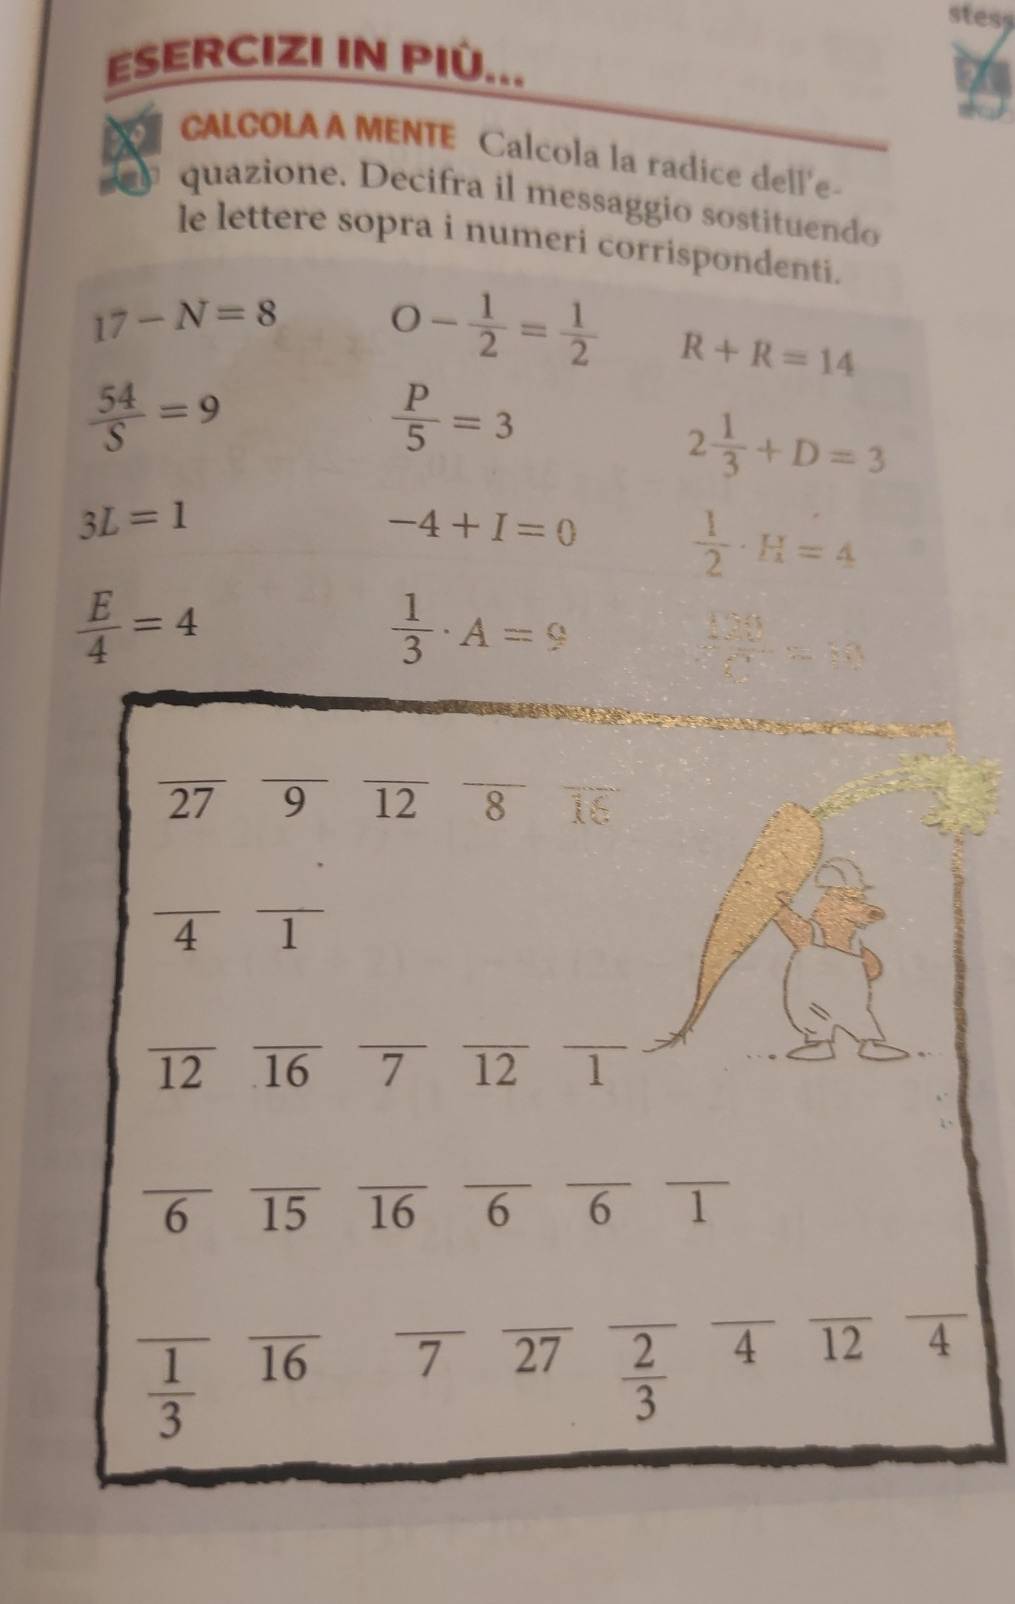 stess
ESERCIZI IN PIÙ...
CALCOLA A MENTE Calcola la radice dell'e-
quazione. Decifra il messaggio sostituendo
le lettere sopra i numeri corrispondenti.
17 − N = 8 O − 1/2 = 1/2 R + R = 14
54/S = 9 P/5 = 3 2 1/3 + D = 3
3L = 1 −4 + I = 0 1/2 · H = 4
E/4 = 4 1/3 · A = 9 120/C = 10
27 9 12 8 16
4 1
12 16 7 12 1
6 15 16 6 6 1
1/3 16 7 27 2/3 4 12 4